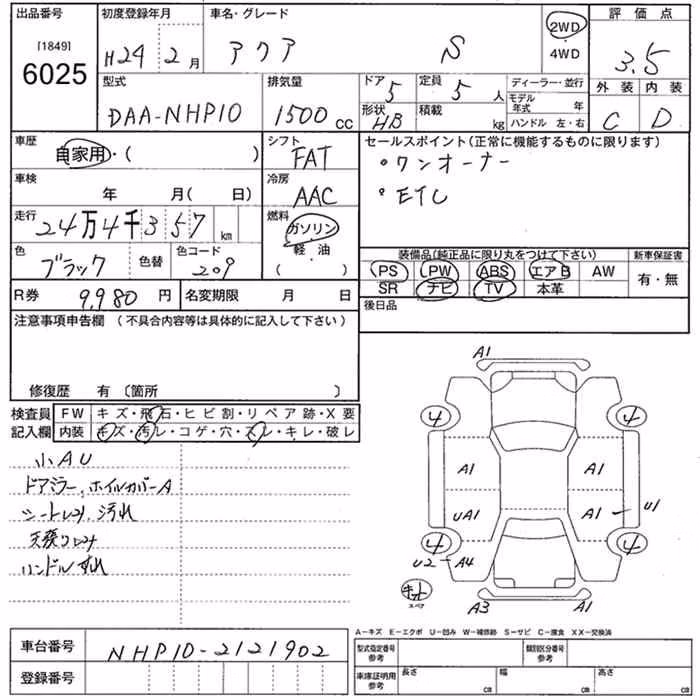 出品番号 初度登録年月 車名・グレード 2WD 評価点
[1849] 6025 H24 2月 アクア S ・4WD 3.5
型式 排気量 ドア 5 定員 5人 ディーラー・並行 外装 内装
DAA-NHP10 1500cc 形状 HB 積載 kg モデル年式 年 C D
ハンドル 左・右
車歴 自家用・( ) シフト FAT セールスポイント(正常に機能するものに限ります)
・ワンオーナー
車検 年 月( 日) 冷房 AAC ・ETC
走行 24万4千357km 燃料 ガソリン・軽・油 ( )
色 ブラック 色替 色コード 209 装備品(純正品に限り丸をつけて下さい) 新車保証書
PS PW ABS エアB AW 有・無
SR ナビ TV 本革
R券 9,980円 名変期限 月 日 後日品
注意事項申告欄(不具合内容等は具体的に記入して下さい)
修復歴 有〔箇所 〕
検査員 FW キズ・飛石・ヒビ割・リペア跡・X要
記入欄 内装 キズ・汚レ・コゲ・穴・スレ・キレ・破レ
小AU
ドアミラー、ホイルカバーA
シートレタ、汚れ
ハンドルすれ
A1
4 4
A1 A1
UA1 A1 U1
4 4
U2 A4
スペア
A3 A1
A-キズ E-エクボ U-凹み W-補修跡 S-サビ C-腐食 XX-交換済
車台番号 NHP10-2121902 型式指定番号 参考 類別区分番号 参考
登録番号 車庫証明用 参考 長さ cm 幅 cm 高さ cm